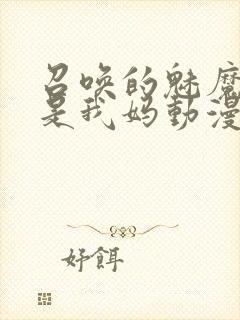 召唤的魅魔
是我妈動漫
好餌